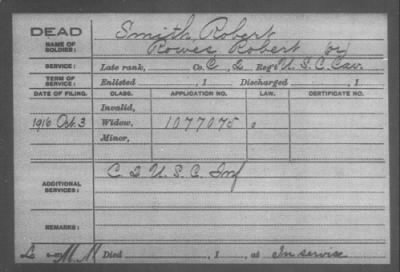 DEAD
Smith, Robert
NAME OF SOLDIER:
Rowes Robert or
SERVICE: Late rank, Co. C, 2. Reg't U. S. C. Cav.
TERM OF SERVICE: Enlisted , 1 Discharged , 1
DATE OF FILING. CLASS. APPLICATION NO. LAW. CERTIFICATE NO.
Invalid,
1916 Oct. 3 Widow, 1077075 0
Minor,
ADDITIONAL SERVICES: C 2 U. S. C. Inf
REMARKS:
Died , 1 , at In service